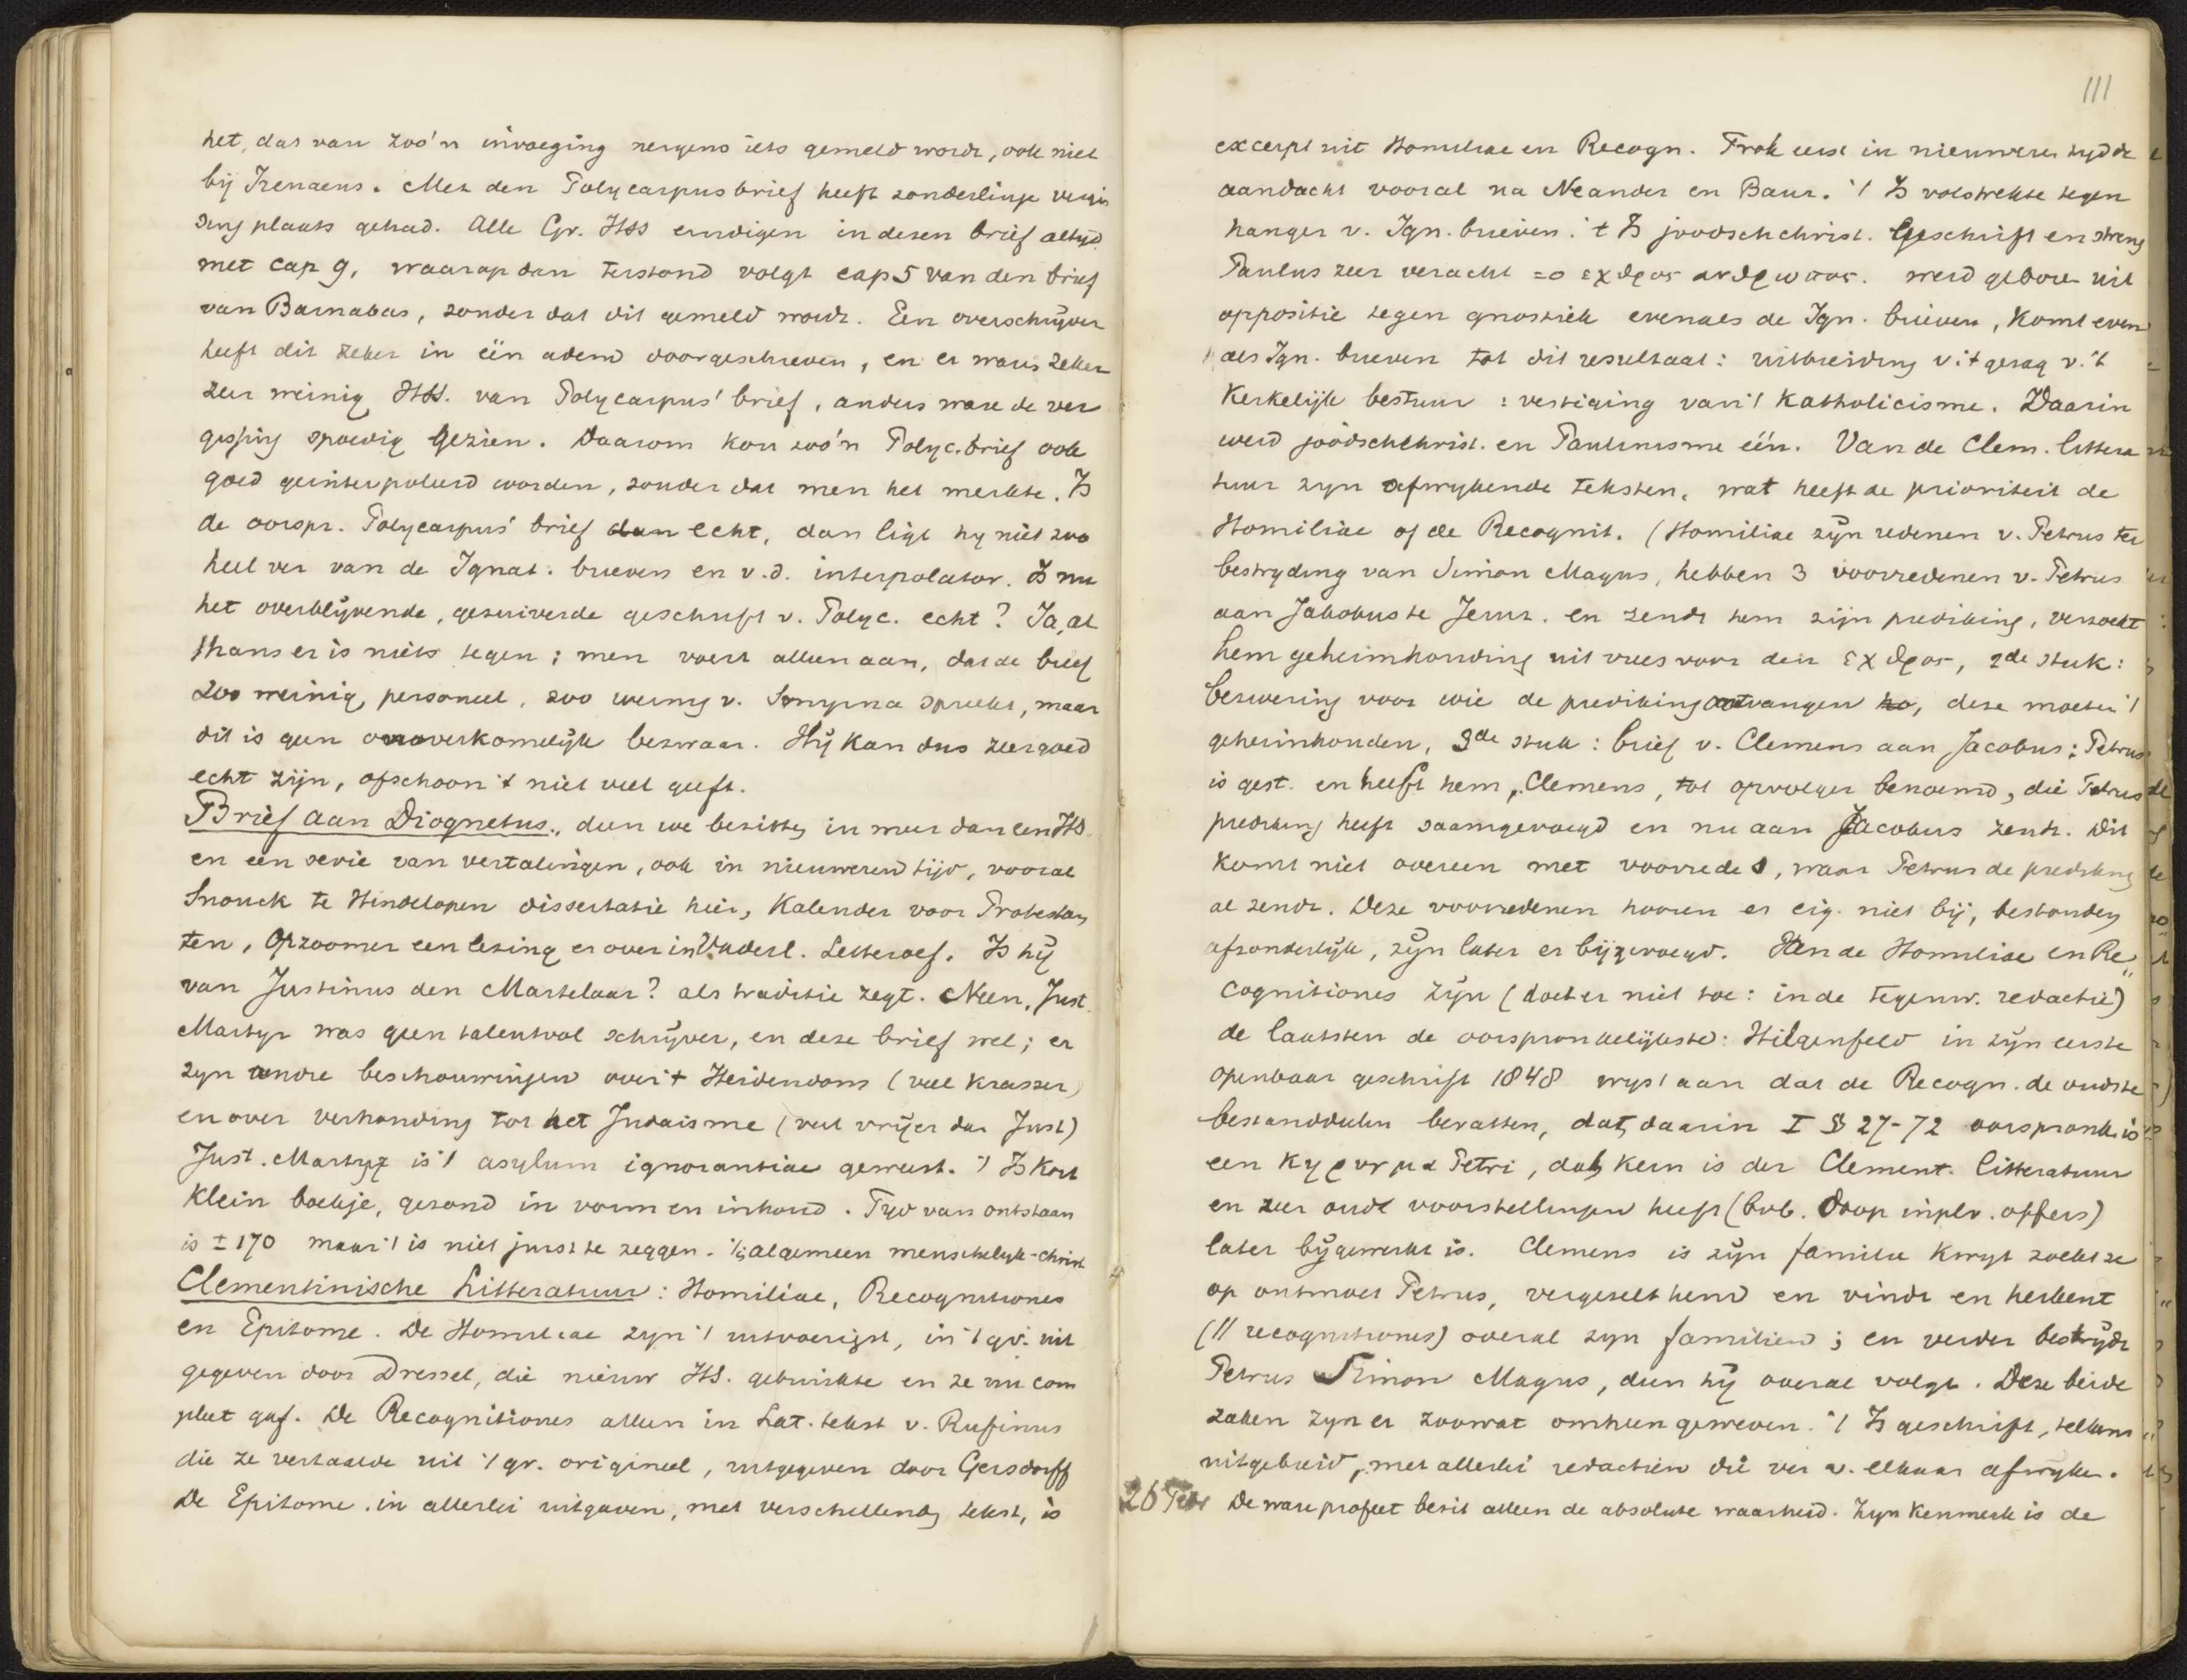 het, dat van zoo'n invoeging nergens iets gemeld wordt, ook niet
bij Irenaeus. Met den Polycarpusbrief heeft zonderlinge vergis
sing plaats gehad. Alle Gr. HSS eindigen in dezen brief altyd
met cap 9, waarop dan terstond volgt cap 5 van den brief
van Barnabas, zonder dat dit gemeld wordt. Een overschrijver
heeft dit zeker in één adem doorgeschreven, en er waren zeker
zeer weinig HSS. van Polycarpus' brief, anders ware de ver
gissing spoedig gezien. Daarom kon zoo'n Polyc. brief ook
goed geinterpoleerd worden, zonder dat men het merkte. Is
de oorspr. Polycarpus' brief dan echt, dan ligt hy niet zoo
heel ver van de Ignat. brieven en v.d. interpolator. Is nu
het overblijvende, gezuiverde geschrift v. Polyc. echt? Ja, al
thans er is niets tegen; men voert alleen aan, dat de brief
zoo weinig personeel, zoo weinig v. Smyrna spreekt, maar
dit is geen onoverkomelijk bezwaar. Hij kan dus zeer goed
echt zijn, ofschoon 't niet veel geeft.
Brief aan Diognetus, dien we bezitten in meer dan een HS.
en een serie van vertalingen, ook in nieuweren tijd, vooral
Snouck te Hindelopen dissertatie hier, Kalender voor Protestan
ten, Opzoomer een lezing er over in Vaderl. Letteroef. Is hij
van Justinus den Martelaar? als traditie zegt. Neen, Just.
Martyr was geen talentvol schrijver, en deze brief wel; er
zyn andre beschouwingen over 't Heidendom (veel krasser)
en over verhouding tot het Judaisme (veel vrijer dan Just)
Just. Martyr is 't asylum ignorantiae geweest. 't Is kort
klein boekje, gezond in vorm en inhoud. Tyd van ontstaan
is ± 170 maar 't is niet juist te zeggen. 't is algemeen menschelijk-christ
Clementinische Litteratuur: Homiliae, Recognitiones
en Epitome. De Homiliae zyn 't uitvoerigst, in 't gr. uit
gegeven door Dressel, die nieuw HS. gebruikte en ze nu com
pleet gaf. De Recognitiones alleen in Lat. tekst v. Rufinus
die ze vertaalde uit 't gr. origineel, uitgegeven door Gersdorff
De Epitome. in allerlei uitgaven, met verschillend tekst, is
111
excerpt uit Homiliae en Recogn. Trok eerst in nieuweren tyd de
aandacht vooral na Neander en Baur. 't Is volstrekte tegen
hanger v. Ign. brieven: 't Is joodschchrist. Geschrift en streng
Paulus zeer veracht = ο εχθρος ανθρωπος. werd geboren uit
oppositie tegen gnostiek evenals de Ign. brieven, komt even
als Ign. brieven tot dit resultaat: uitbreiding v. 't gezag v. 't
Kerkelijk bestuur: vestiging van 't Katholicisme. Daarin
werd joodschchrist. en Paulinisme één. Van de Clem. littera
tuur zyn afwykende teksten, wat heeft de prioriteit de
Homiliae of de Recognit. (Homiliae zijn redenen v. Petrus ter
bestryding van Simon Magus, hebben 3 voorredenen v. Petrus
aan Jakobus te Jeruz. en zendt hem zijn prediking, verzoekt
hem geheimhouding uit vrees voor den εχθρος, 2de stuk:
bezwering voor wie de prediking ontvangen, deze moeten 't
geheimhouden, 3de stuk: brief v. Clemens aan Jacobus: Petrus
is gest. en heeft hem, Clemens, tot opvolger benoemd, die Petrus
prediking heeft saamgevoegd en nu aan Jacobus zendt. Dit
komt niet overeen met voorrede 1, waar Petrus de prediking
al zendt. Deze voorredenen hooren er eig. niet bij, bestonden
afzonderlijk, zijn later er bijgevoegd. Van de Homiliae en Re
cognitiones zijn (doet er niet toe: in de tegenw. redactie)
de laatsten de oorspronkelijkste: Hilgenfeld in zijn eerste
openbaar geschrift 1848 wyst aan dat de Recogn. de oudste
bestanddeelen bevatten, dat daarin I § 27-72 oorspronk. is
een κηρυγμα Petri, dat kern is der Clement. litteratuur
en zeer oude voorstellingen heeft (bvb. doop in pl. v. offers)
later bijgewerkt is. Clemens is zijn familie kwyt zoekt ze
op ontmoet Petrus, vergezelt hem en vindt en herkent
(// recognitiones) overal zyn familie; en verder bestrydt
Petrus Simon Magus, dien hij overal volgt. Deze beide
zaken zyn er zoowat omheen geweven. 't Is geschrift, telkens
uitgebreid, met allerlei redactiën die ver v. elkaar afwyken.
26 Febr De ware profeet bezit alleen de absolute waarheid. Zyn kenmerk is de